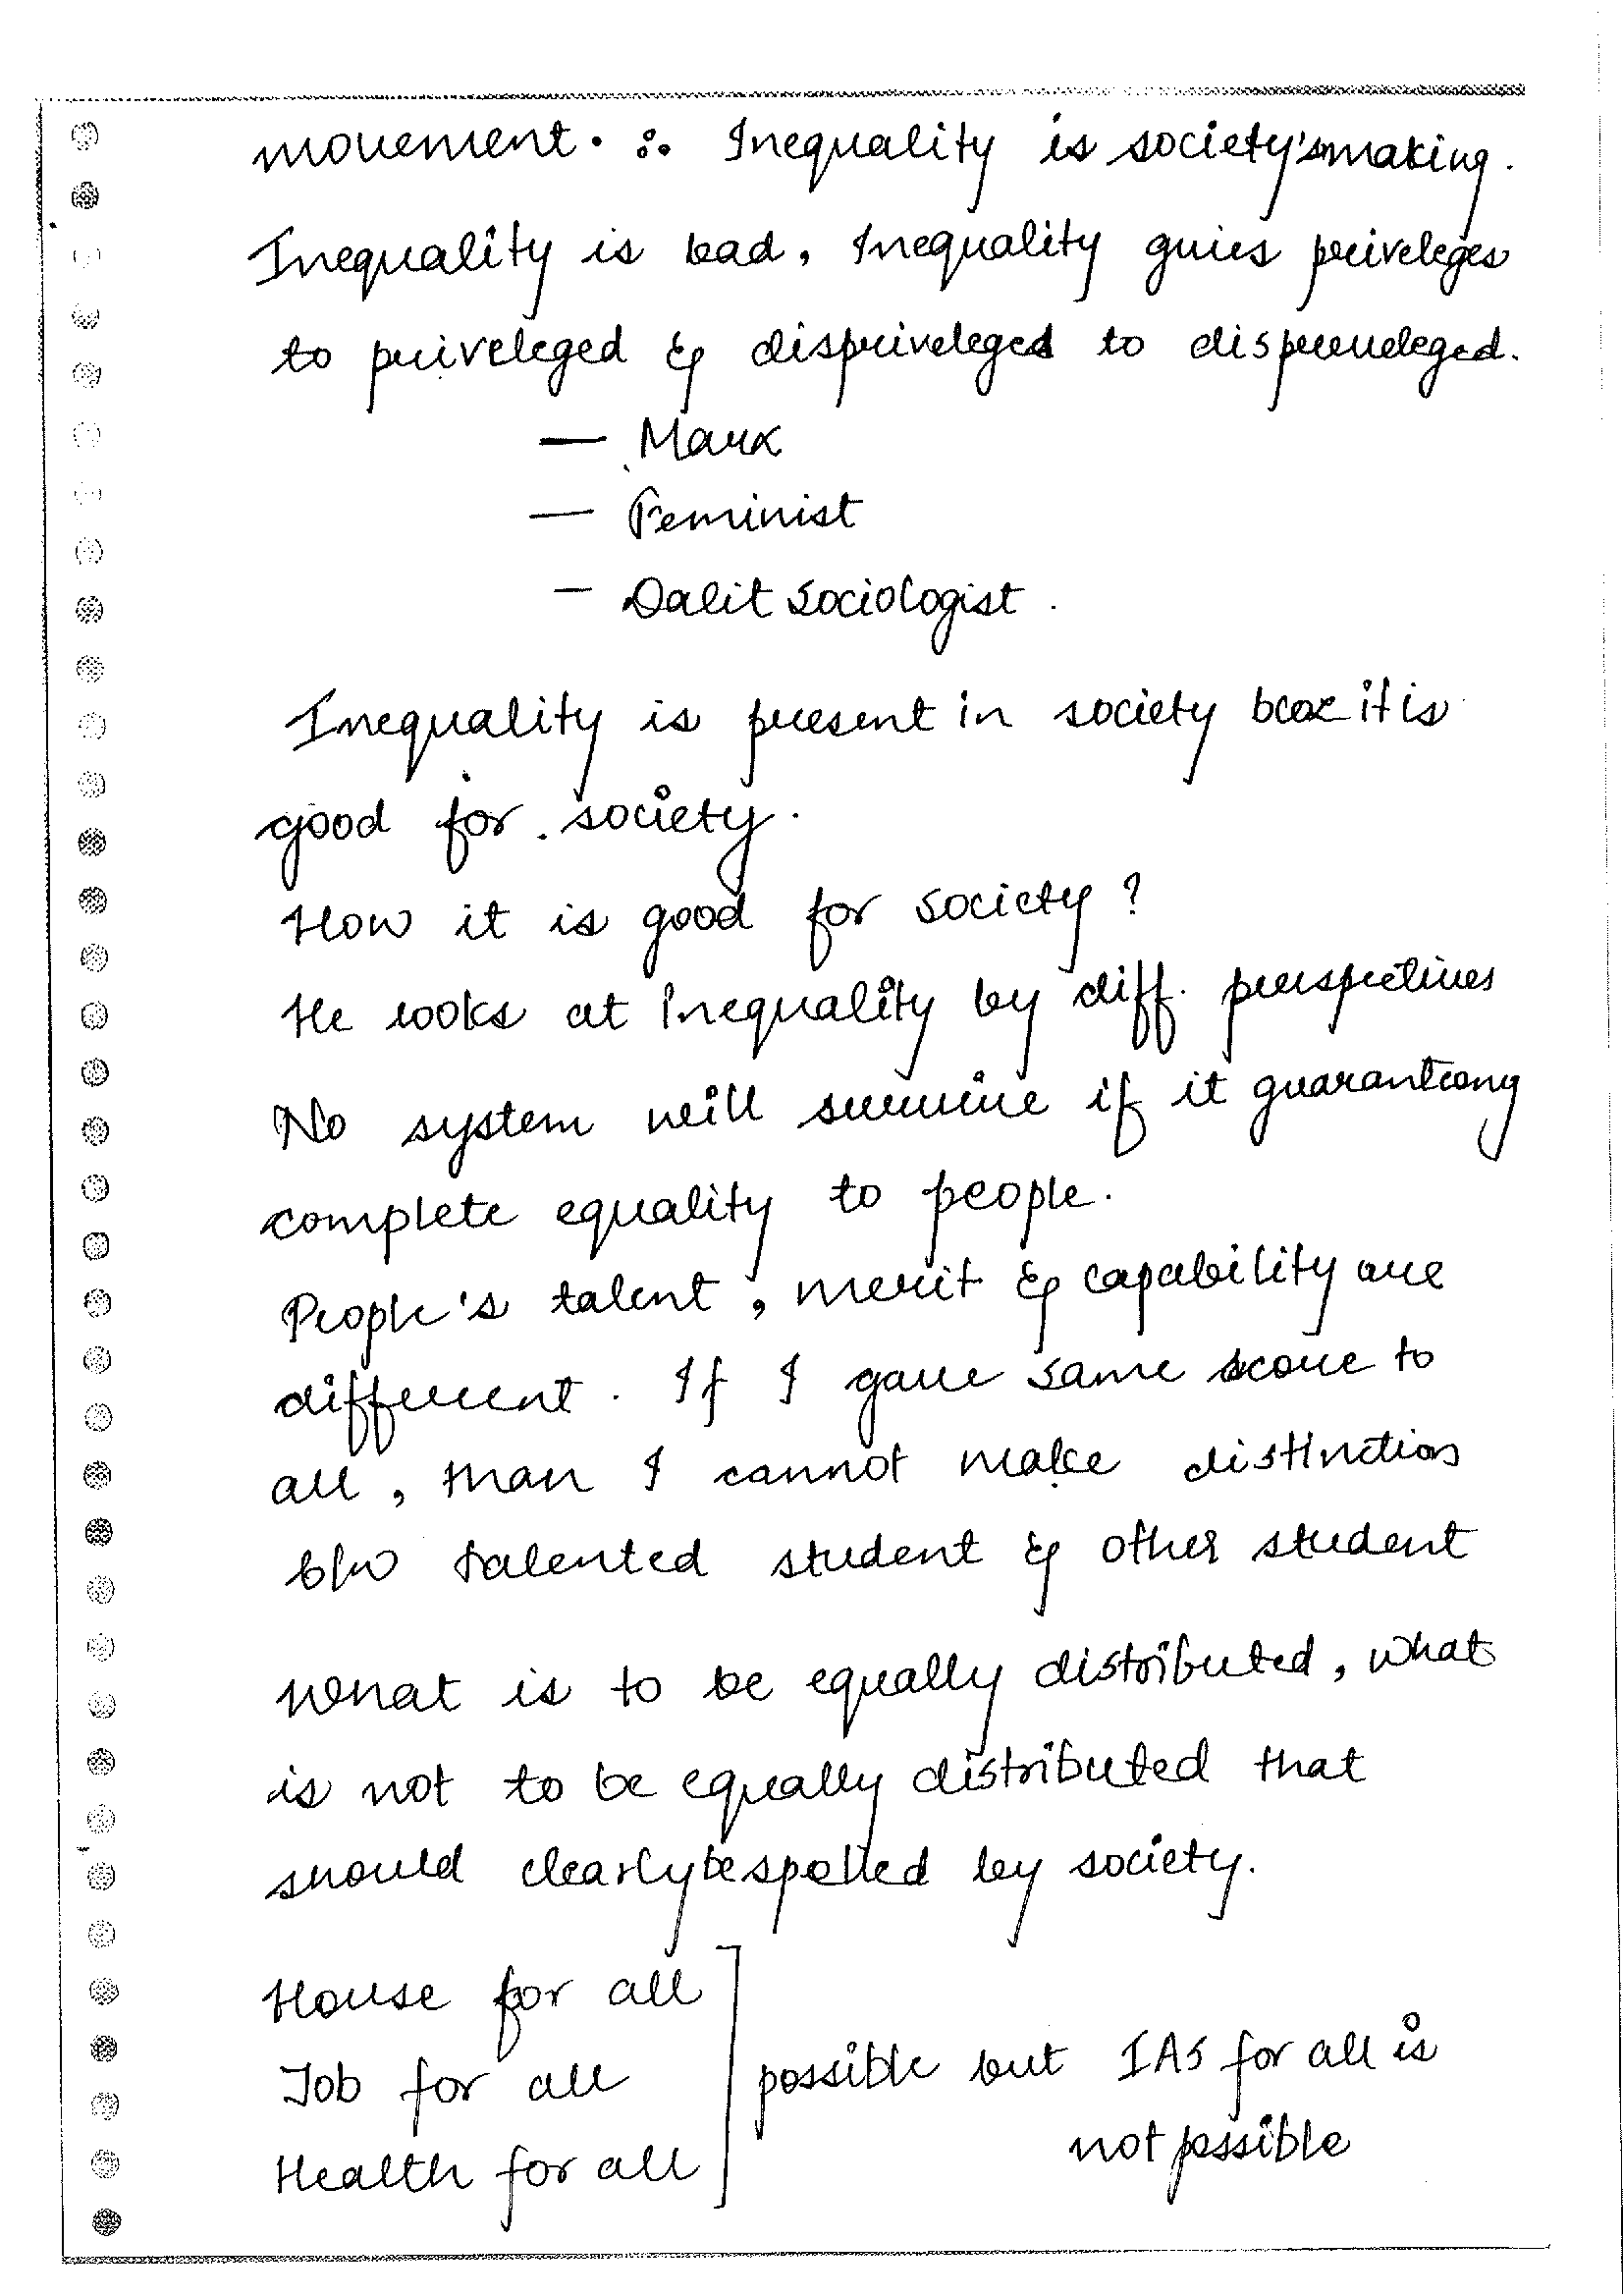 movement. ∴ Inequality is society's making.
Inequality is bad, Inequality gives priveleges
to priveleged & dispriveleged to dispreveleged.
— Marx
— Feminist
— Dalit Sociologist.
Inequality is present in society bcoz it is
good for society.
How it is good for society?
He looks at Inequality by diff. perspectives
No system will survive if it guaranteeing
complete equality to people.
People's talent, merit & capability are
different. If I gave same score to
all, than I cannot make distinction
b/w talented student & other student
What is to be equally distributed, what
is not to be equally distributed that
should clearly be spelled by society.
House for all
Job for all
Health for all
possible but IAS for all is
not possible